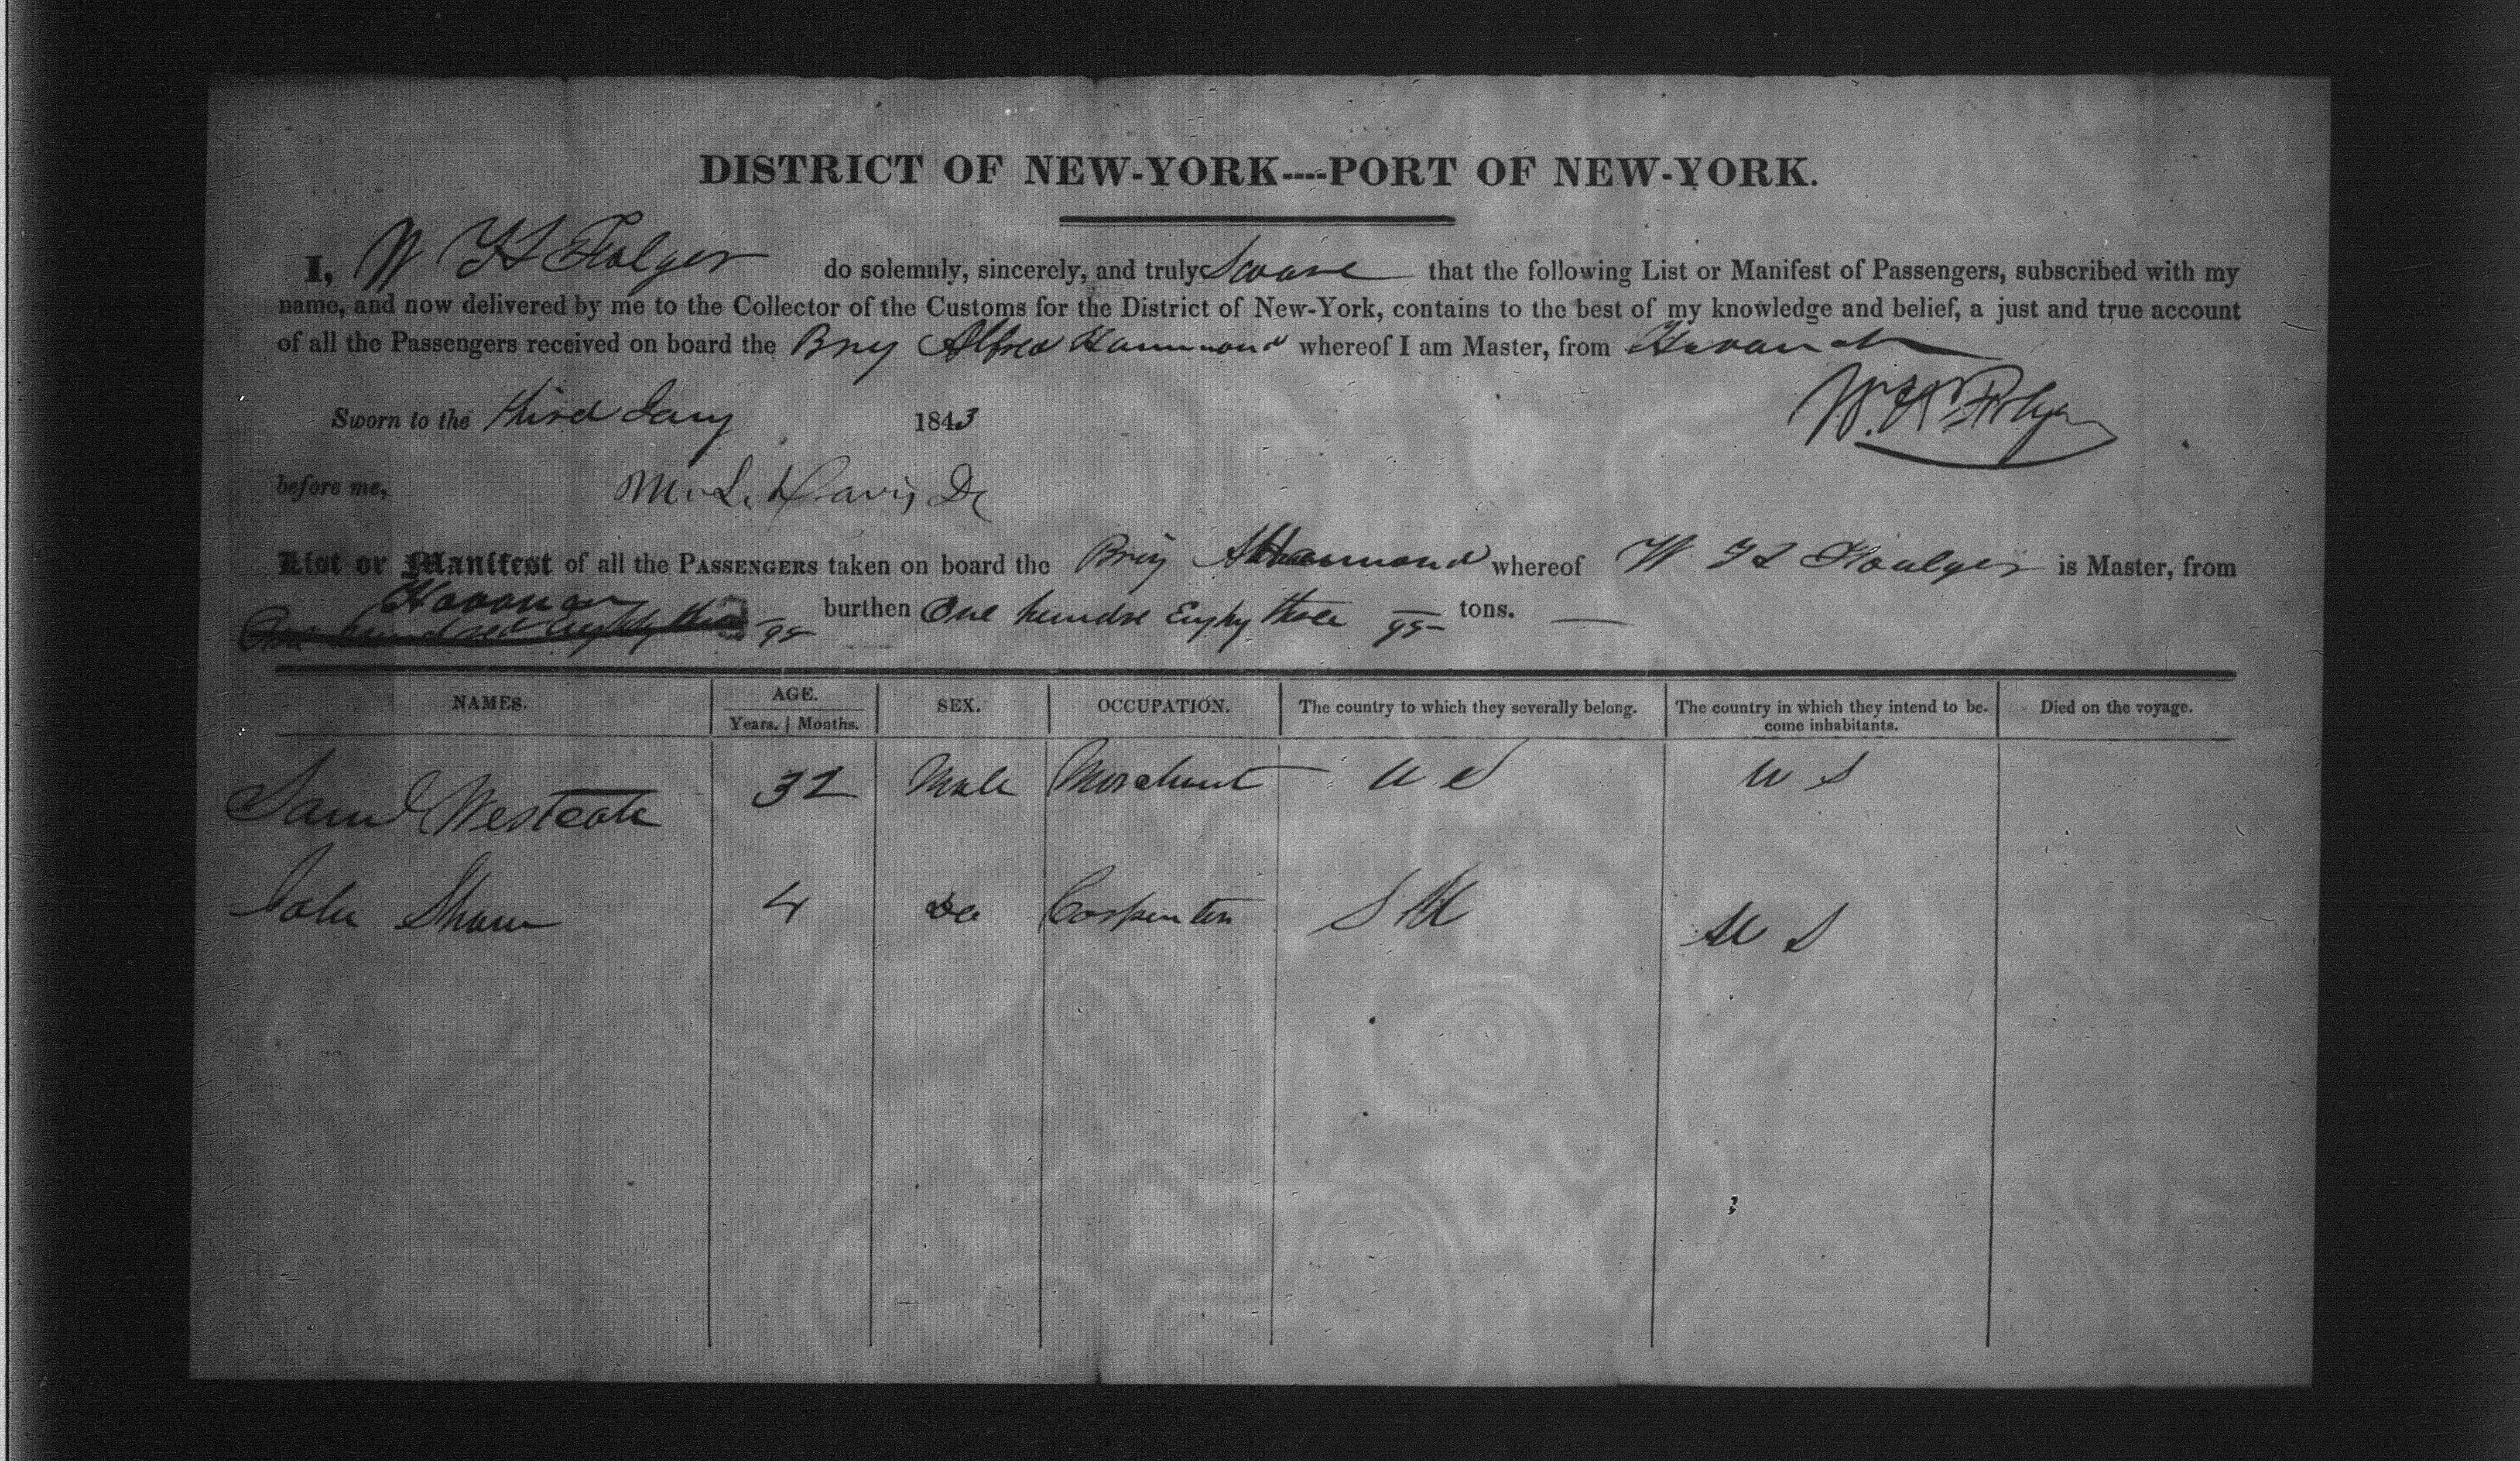 DISTRICT OF NEW-YORK----PORT OF NEW-YORK.
I, W Folger do solemnly, sincerely, and truly Sware that the following List or Manifest of Passengers, subscribed with my
name, and now delivered by me to the Collector of the Customs for the District of New-York, contains to the best of my knowledge and belief, a just and true account
of all the Passengers received on board the Brig Alfred Hammond whereof I am Master, from Havana
Sworn to the third Jany 1843
W. Folger
before me, M. L. Davis, Dr
List or Manifest of all the PASSENGERS taken on board the Brig A Hammond whereof W Foulger is Master, from
Havana burthen One hundre Eighy three 95 tons.
One hundred Eighty three 95
NAMES. AGE. SEX. OCCUPATION. The country to which they severally belong. The country in which they intend to be- Died on the voyage.
Years. | Months. come inhabitants.
Saml Westcote 32 Male Merchant U S U S
John Shaw 4 do Carpenter S U U S